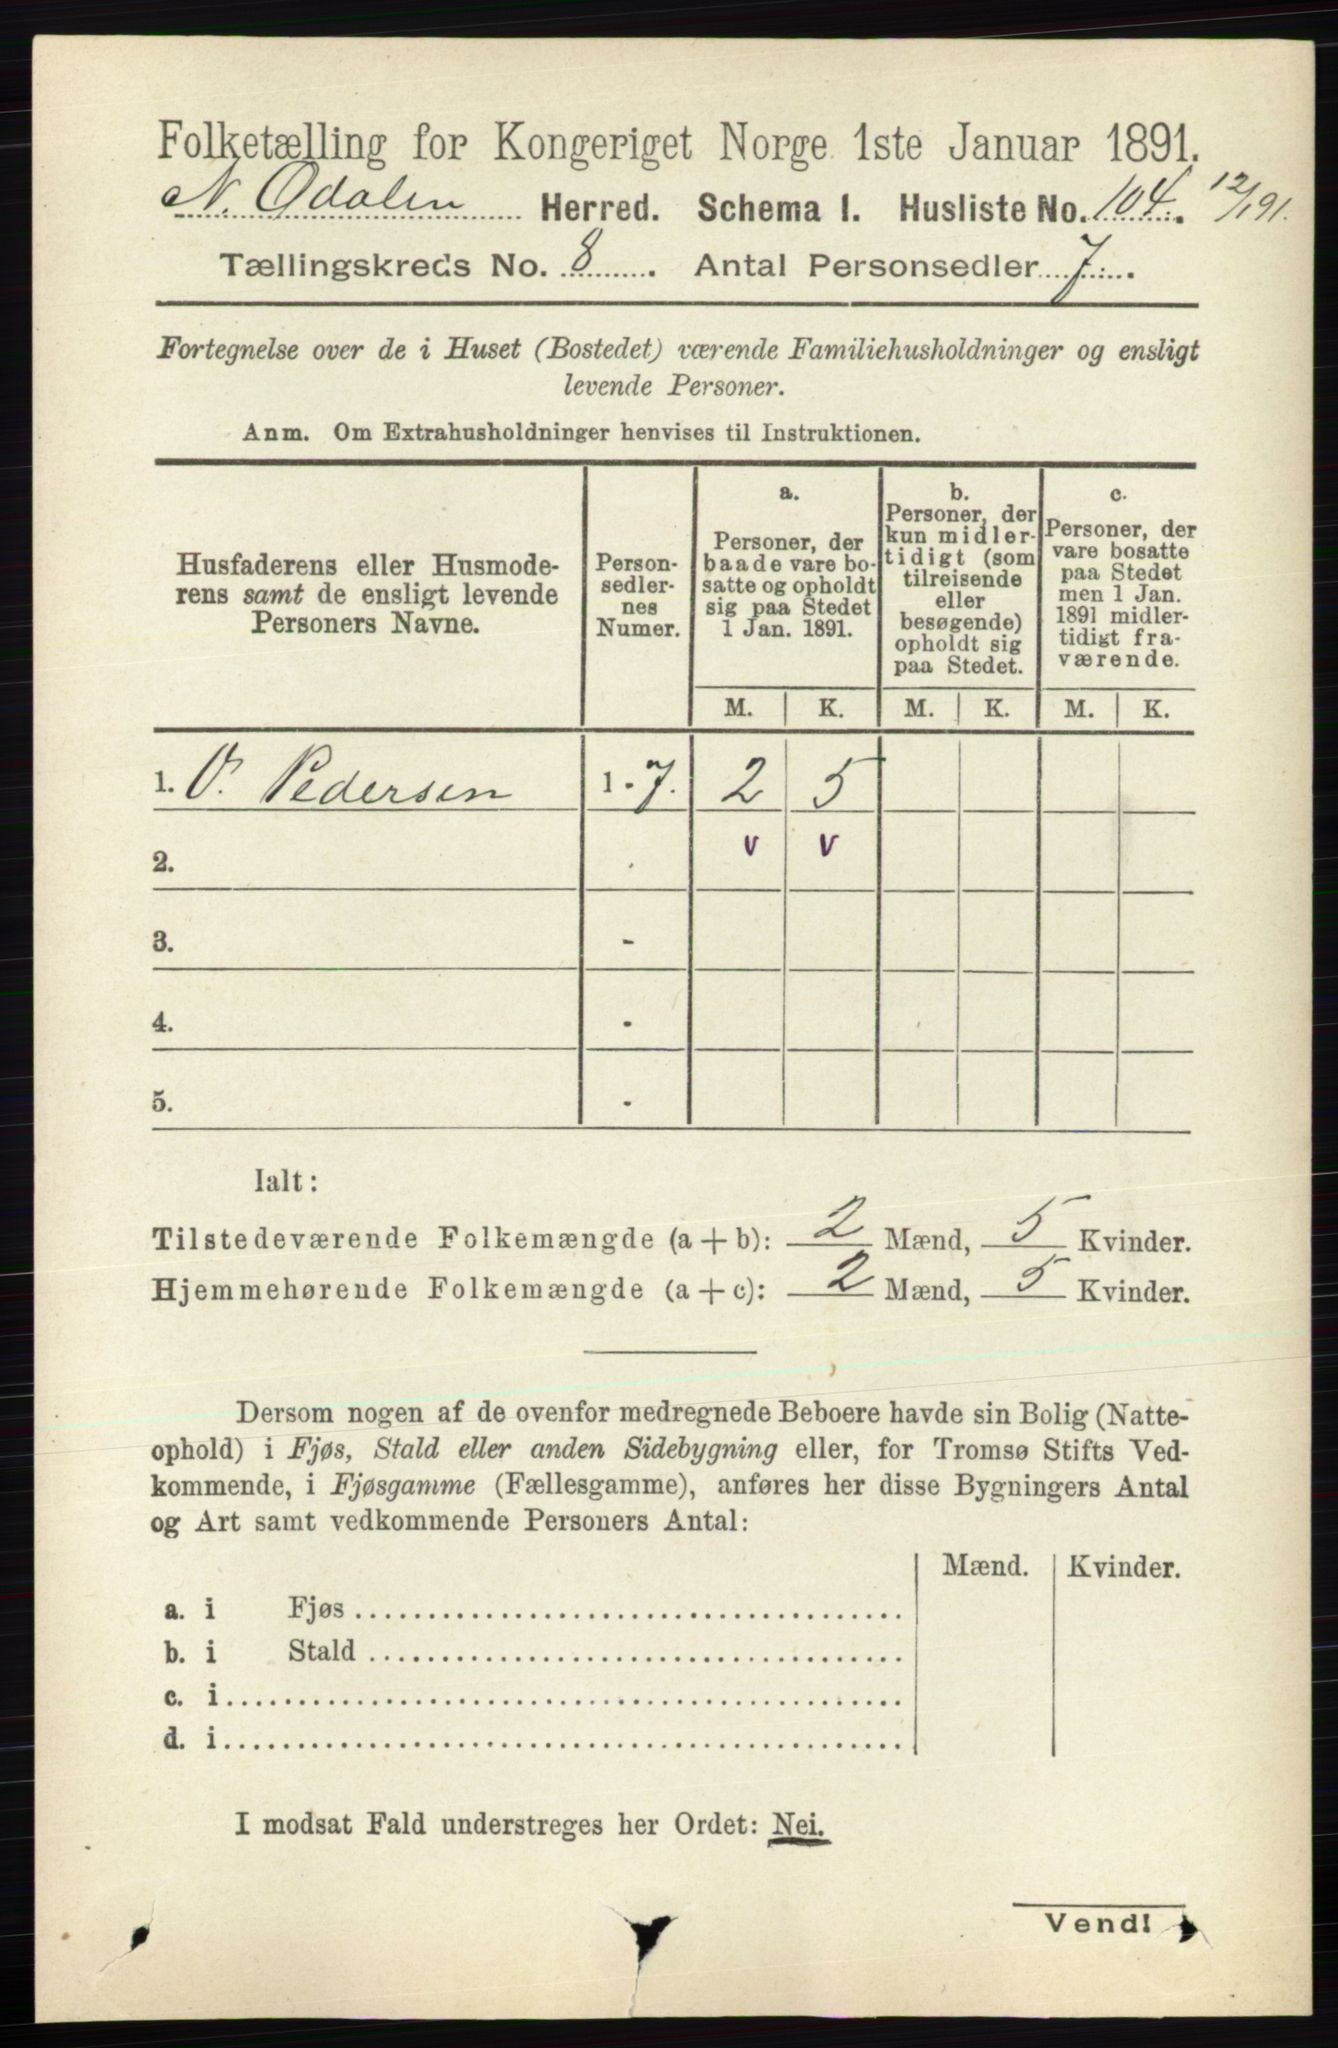 Folketælling for Kongeriget Norge 1ste Januar 1891.
N. Odalen Herred. Schema I. Husliste No. 104. 12/1 91.
Tællingskreds No. 8. Antal Personsedler 7.
Fortegnelse over de i Huset (Bostedet) værende Familiehusholdninger og ensligt
levende Personer.
Anm. Om Extrahusholdninger henvises til Instruktionen.
Husfaderens eller Husmode-
rens samt de ensligt levende
Personers Navne.
Person-
sedler-
nes
Numer.
a.
Personer, der
baade vare bo-
satte og opholdt
sig paa Stedet
1 Jan. 1891.
b.
Personer, der
kun midler-
tidigt (som
tilreisende
eller
besøgende)
opholdt sig
paa Stedet.
c.
Personer, der
vare bosatte
paa Stedet
men 1 Jan.
1891 midler-
tidigt fra-
værende.
M. K. M. K. M. K.
1. O. Pedersen 1 - 7. 2 5
v v
2.
3. -
4. -
5. -
Ialt:
Tilstedeværende Folkemængde (a + b): 2 Mænd, 5 Kvinder.
Hjemmehørende Folkemængde (a + c): 2 Mænd, 5 Kvinder.
Dersom nogen af de ovenfor medregnede Beboere havde sin Bolig (Natte-
ophold) i Fjøs, Stald eller anden Sidebygning eller, for Tromsø Stifts Ved-
kommende, i Fjøsgamme (Fællesgamme), anføres her disse Bygningers Antal
og Art samt vedkommende Personers Antal:
Mænd. Kvinder.
a. i Fjøs
b. i Stald
c. i
d. i
I modsat Fald understreges her Ordet: Nei.
Vend!